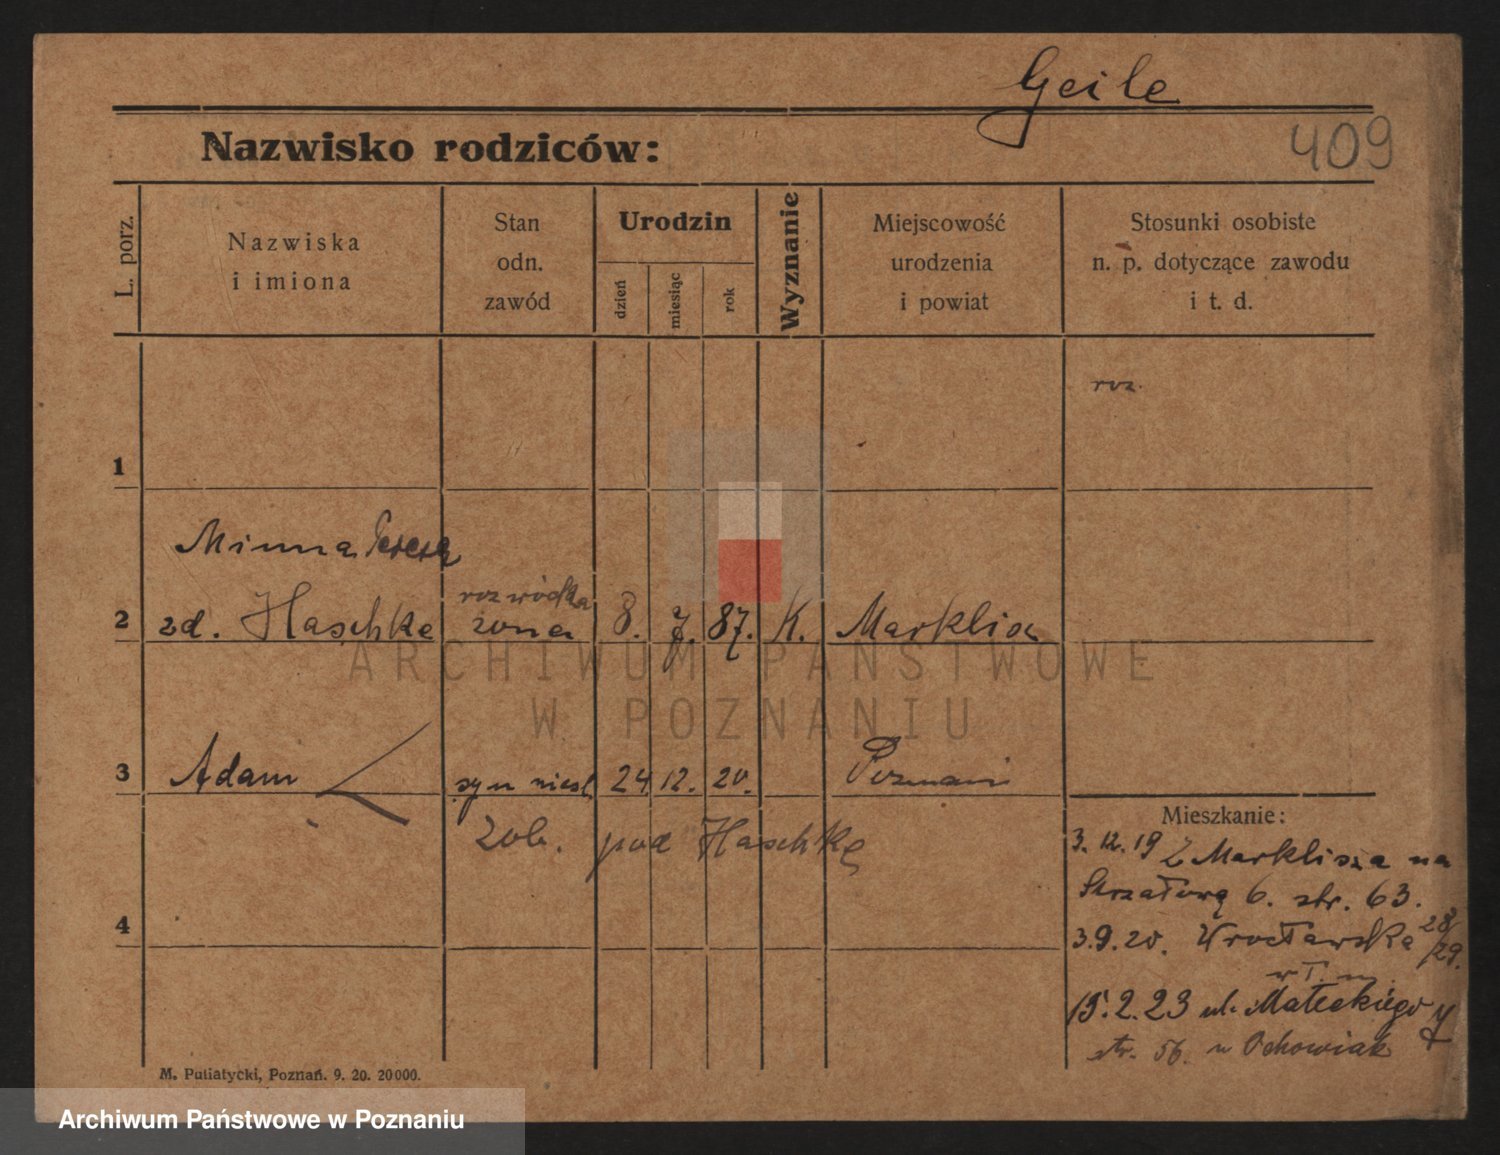 Geile
409
Nazwisko rodziców:
L. porz.
Nazwiska
i imiona
Stan
odn.
zawód
Urodzin
dzień
miesiąc
rok
Wyznanie
Miejscowość
urodzenia
i powiat
Stosunki osobiste
n. p. dotyczące zawodu
i t. d.
roz.
1
Minna
2 zd. Haschke rozwódka żona 8. 7. 87. K.
ARCHIWUM PAŃSTWOWE
W POZNANIU
3 Adam syn 24 12. 20. Poznań
Zob. pod Haschke
4
Mieszkanie:
3.12.19 Z na
6. str. 63.
3.9.20. Wrocławska 28/29.
15.2.23 ul. Małeckiego
str. 56. u Ochowiak
M. Putiatycki, Poznań. 9. 20. 20000.
Archiwum Państwowe w Poznaniu